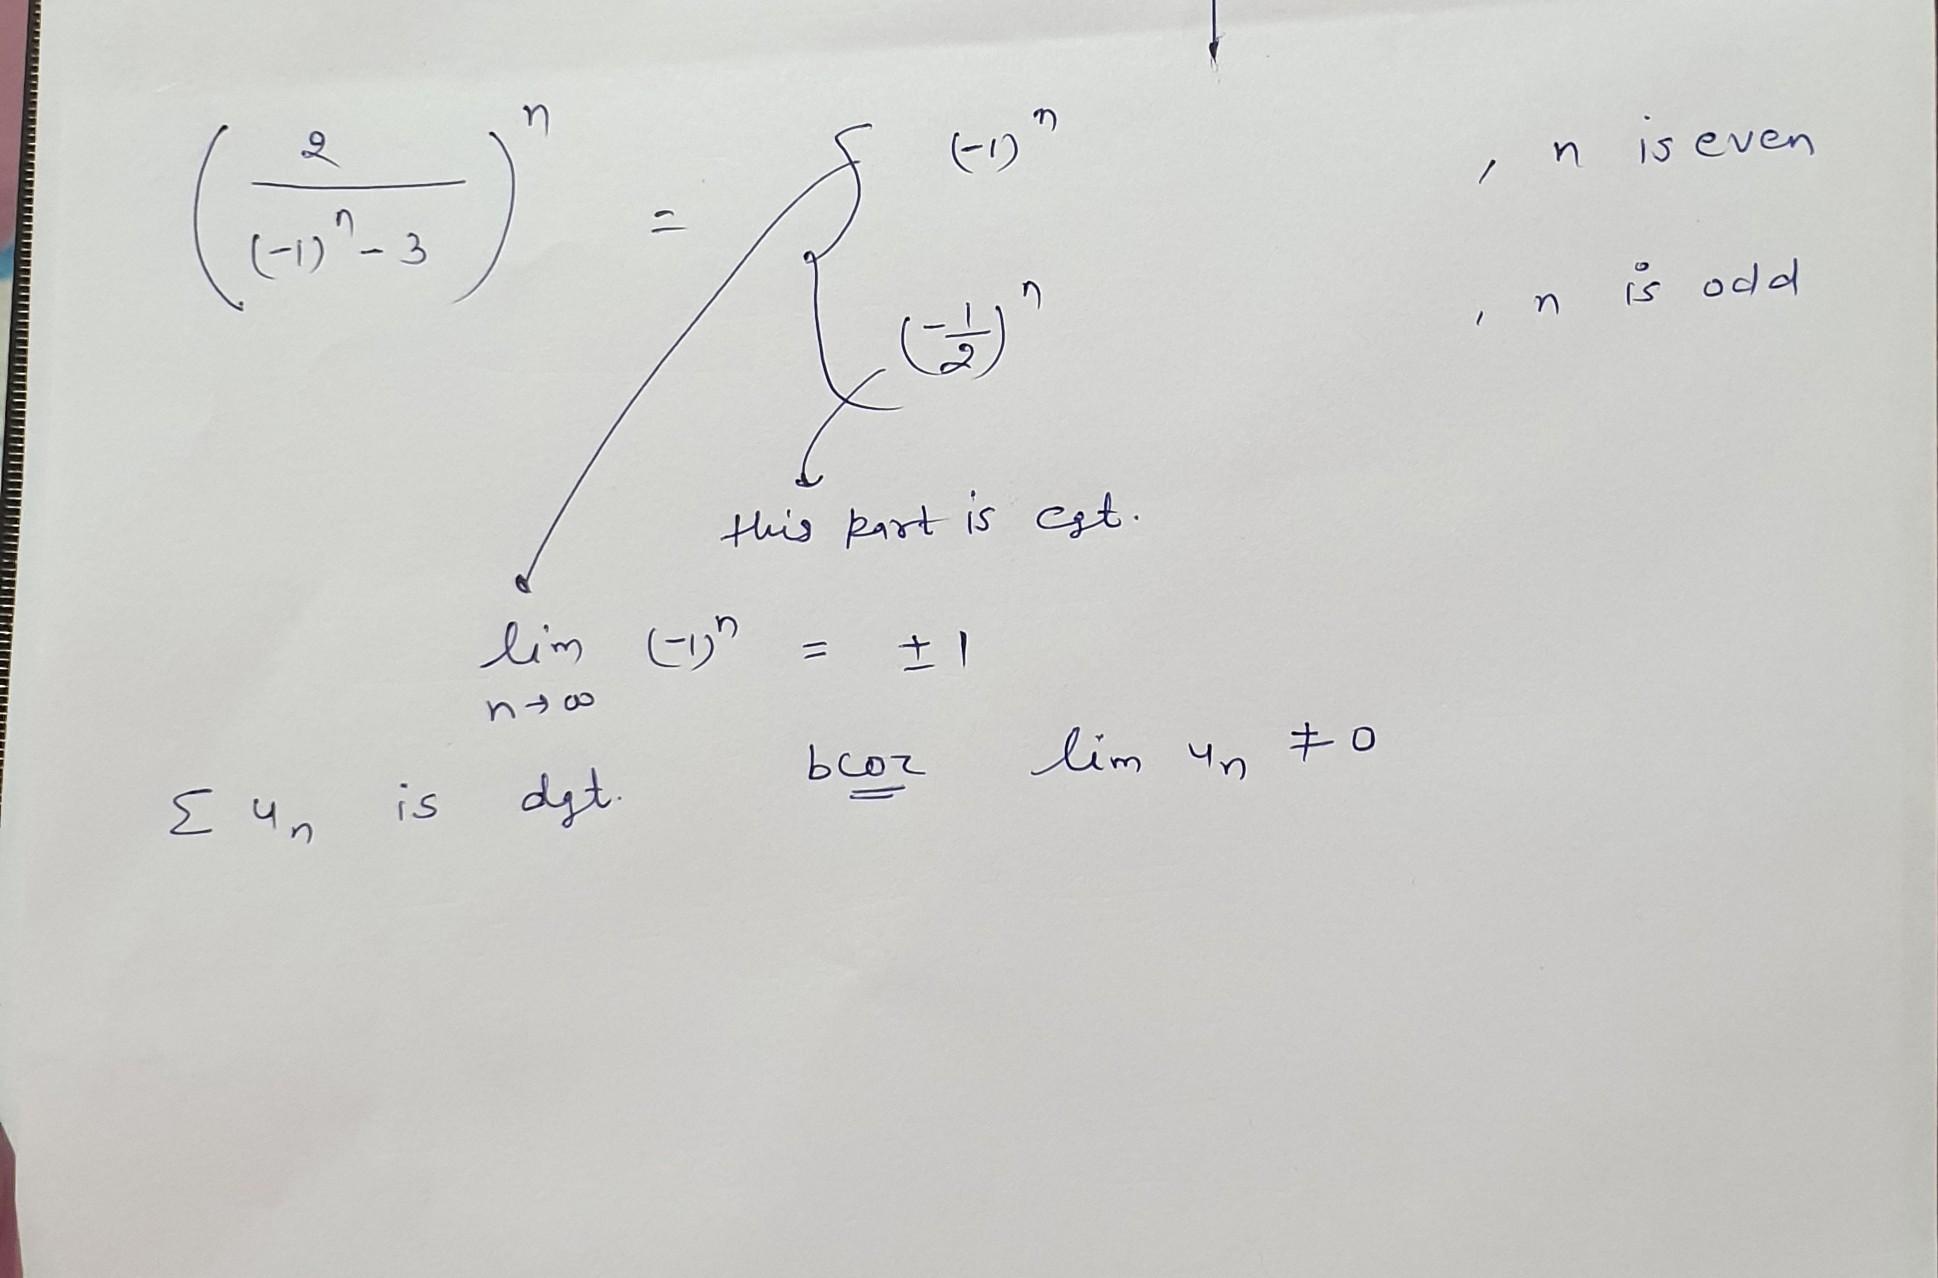 (2/((-1)^n - 3))^n = { (-1)^n , n is even
(-1/2)^n , n is odd
this part is cgt.
lim n→∞ (-1)^n = ± 1
Σ u_n is dgt. bcoz lim u_n ≠ 0